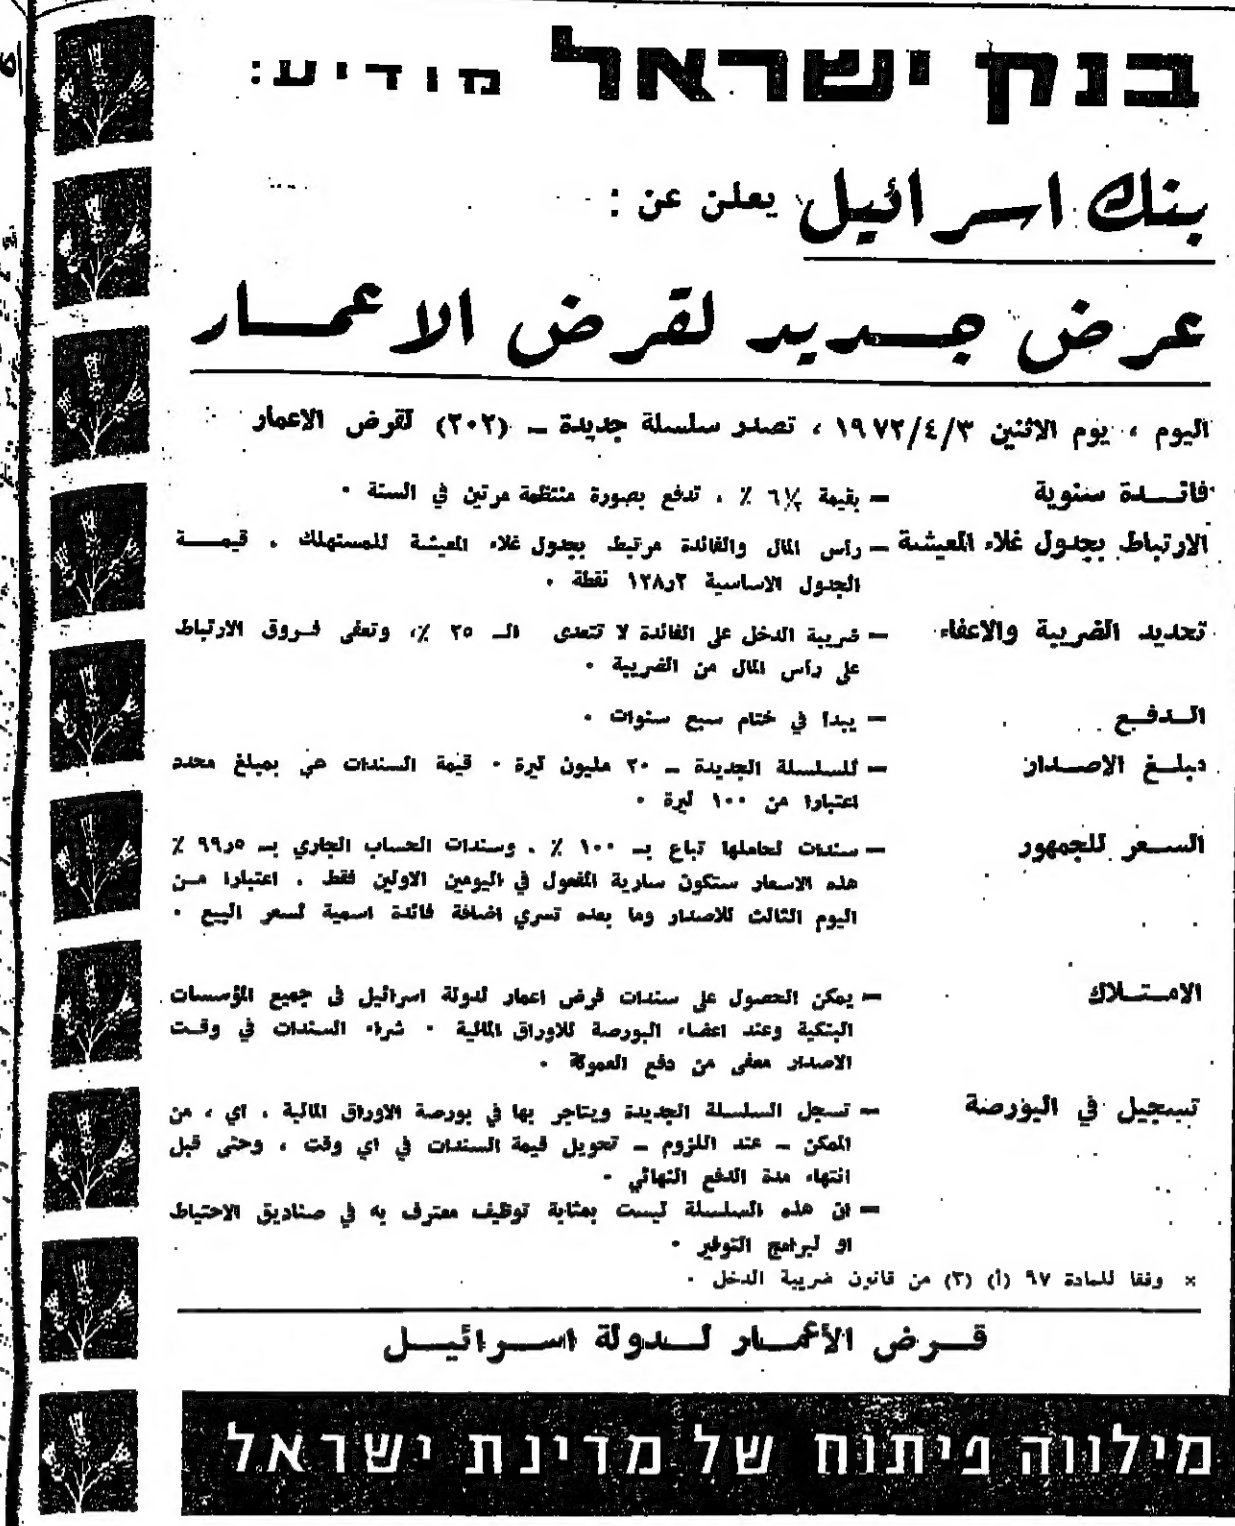 בנק ישראל מודיע:
بنك اسرائيل يعلن عن :
عرض جديد لقرض الاعمار
اليوم ، يوم الاثنين ١٩٧٢/٤/٣ ، تصدر سلسلة جديدة ــ (٢٠٢) لقرض الاعمار
فائدة سنوية — بقيمة ٦½ ٪ ، تدفع بصورة منتظمة مرتين في السنة ٠
الارتباط بجدول غلاء المعيشة — رأس المال والفائدة مرتبط بجدول غلاء المعيشة للمستهلك ٠ قيمة
الجدول الاساسية ٢ر١٢٨ نقطة ٠
تحديد الضريبة والاعفاء — ضريبة الدخل على الفائدة لا تتعدى الـ ٢٥ ٪، وتعفى فروق الارتباط
على رأس المال من الضريبة ٠
الدفع — يبدا في ختام سبع سنوات ٠
مبلغ الاصدار — للسلسلة الجديدة ــ ٢٠ مليون ليرة ٠ قيمة السندات هي بمبلغ محدد
اعتبارا من ١٠٠ ليرة ٠
السعر للجمهور — سندات لحاملها تباع بـ ١٠٠ ٪ ٠ وسندات الحساب الجاري بـ ٥ر٩٩ ٪
هذه الاسعار ستكون سارية المفعول في اليومين الاولين فقط ٠ اعتبارا من
اليوم الثالث للاصدار وما بعده تسري اضافة فائدة اسمية لسعر البيع ٠
الامتلاك — يمكن الحصول على سندات قرض اعمار لدولة اسرائيل في جميع المؤسسات
البنكية وعند اعضاء البورصة للاوراق المالية ٠ شراء السندات في وقت
الاصدار معفى من دفع العمولة ٠
تسجيل في البورصة — تسجل السلسلة الجديدة ويتاجر بها في بورصة الاوراق المالية ٠ اي ، من
الممكن ــ عند اللزوم ــ تحويل قيمة السندات في اي وقت ، وحتى قبل
انتهاء مدة الدفع النهائي ٠
— ان هذه السلسلة ليست بمثابة توظيف معترف به في صناديق الاحتياط
او لبرامج التوفير ٠
× وفقا للمادة ٩٧ (أ) (٣) من قانون ضريبة الدخل ٠
قرض الأعمار لدولة اسرائيل
מילווה פיתוח של מדינת ישראל